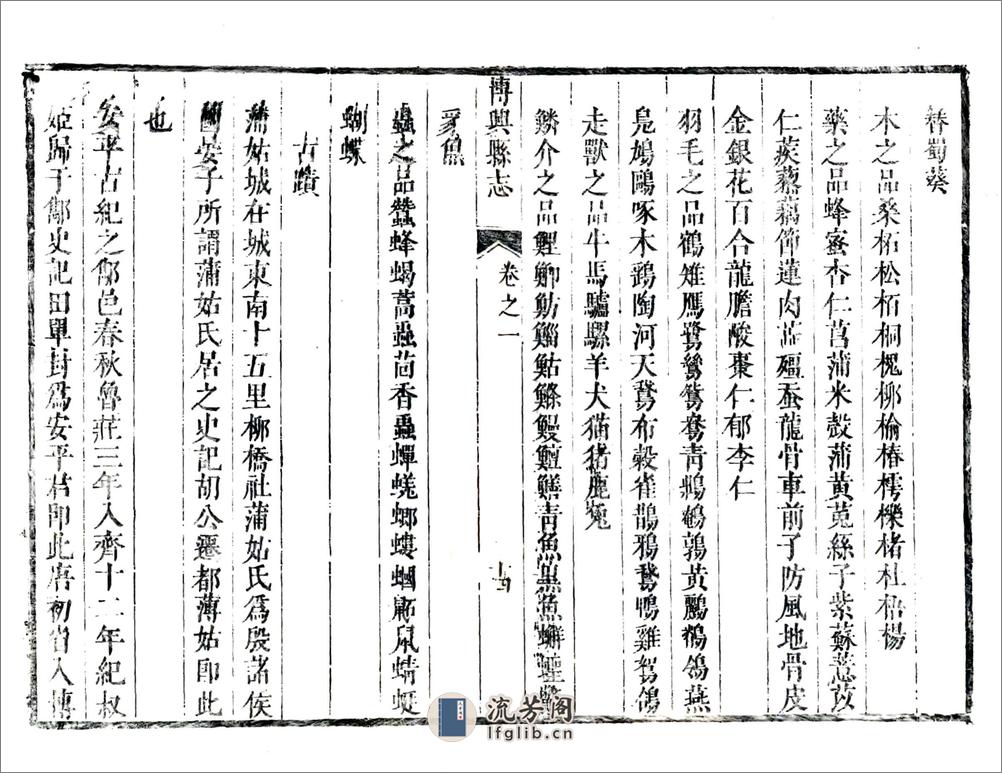 簪蜀葵
木之品桑柘松栢桐槐柳榆椿樗櫟楮杜梧楊
藥之品蜂蜜杏仁菖蒲米殼蒲黃菟絲子紫蘇薏苡
仁蒺藜藕節蓮肉苽殭蚕龍骨車前子防風地骨皮
金銀花百合龍膽酸棗仁郁李仁
羽毛之品鶴雉鷹鷺鴛鴦青鵶鵪鶉黃鸝鶺鴒燕
鳬鳩鷗啄木鵶陶河天鵞布穀雀鵲鴉鵞鴨雞鴐鴿
走獸之品牛馬驢騾羊犬猫猪鹿兔
鱗介之品鯉鯽魴鯔鮎鰷鰻鱣鱔青魚黑魚蟹蟶
博興縣志
卷之一
十四
豸魚
蟲之品蠶蜂蝎蒿蟲茴香蟲蟬螳螂螻蟈鼫鼠蜻蜓
蝴蝶
古蹟
蒲姑城在城東南十五里柳橋社蒲姑氏爲殷諸侯
國晏子所謂蒲姑氏居之史記胡公遷都薄姑卽此
也
安平古紀之酅邑春秋魯莊三年入齊十二年紀叔
姬歸于酅史記田單封爲安平君卽此唐初省入博
流芳阁
lfglib.cn